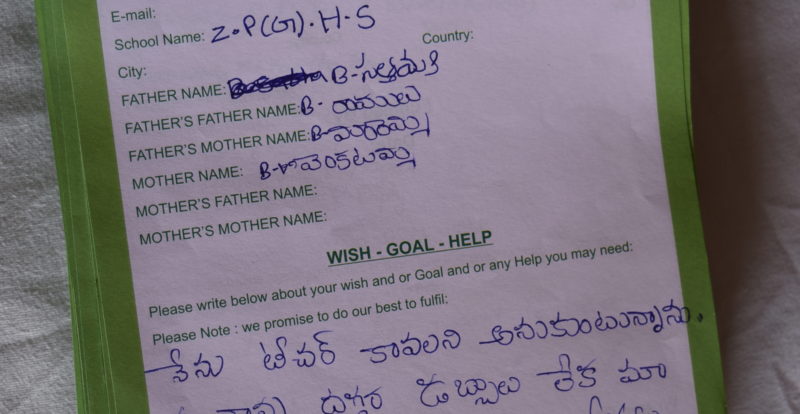 E-mail:
School Name: Z.P(G).H.S
City: Country:
FATHER NAME: B-
FATHER'S FATHER NAME: B- రాములు
FATHER'S MOTHER NAME: B-
MOTHER NAME: B- వెంకటమ్మ
MOTHER'S FATHER NAME:
MOTHER'S MOTHER NAME:
WISH - GOAL - HELP
Please write below about your wish and or Goal and or any Help you may need:
Please Note : we promise to do our best to fulfil:
నేను టీచర్ కావలని అనుకుంటున్నాను.
దగ్గర డబ్బులు లేక మా